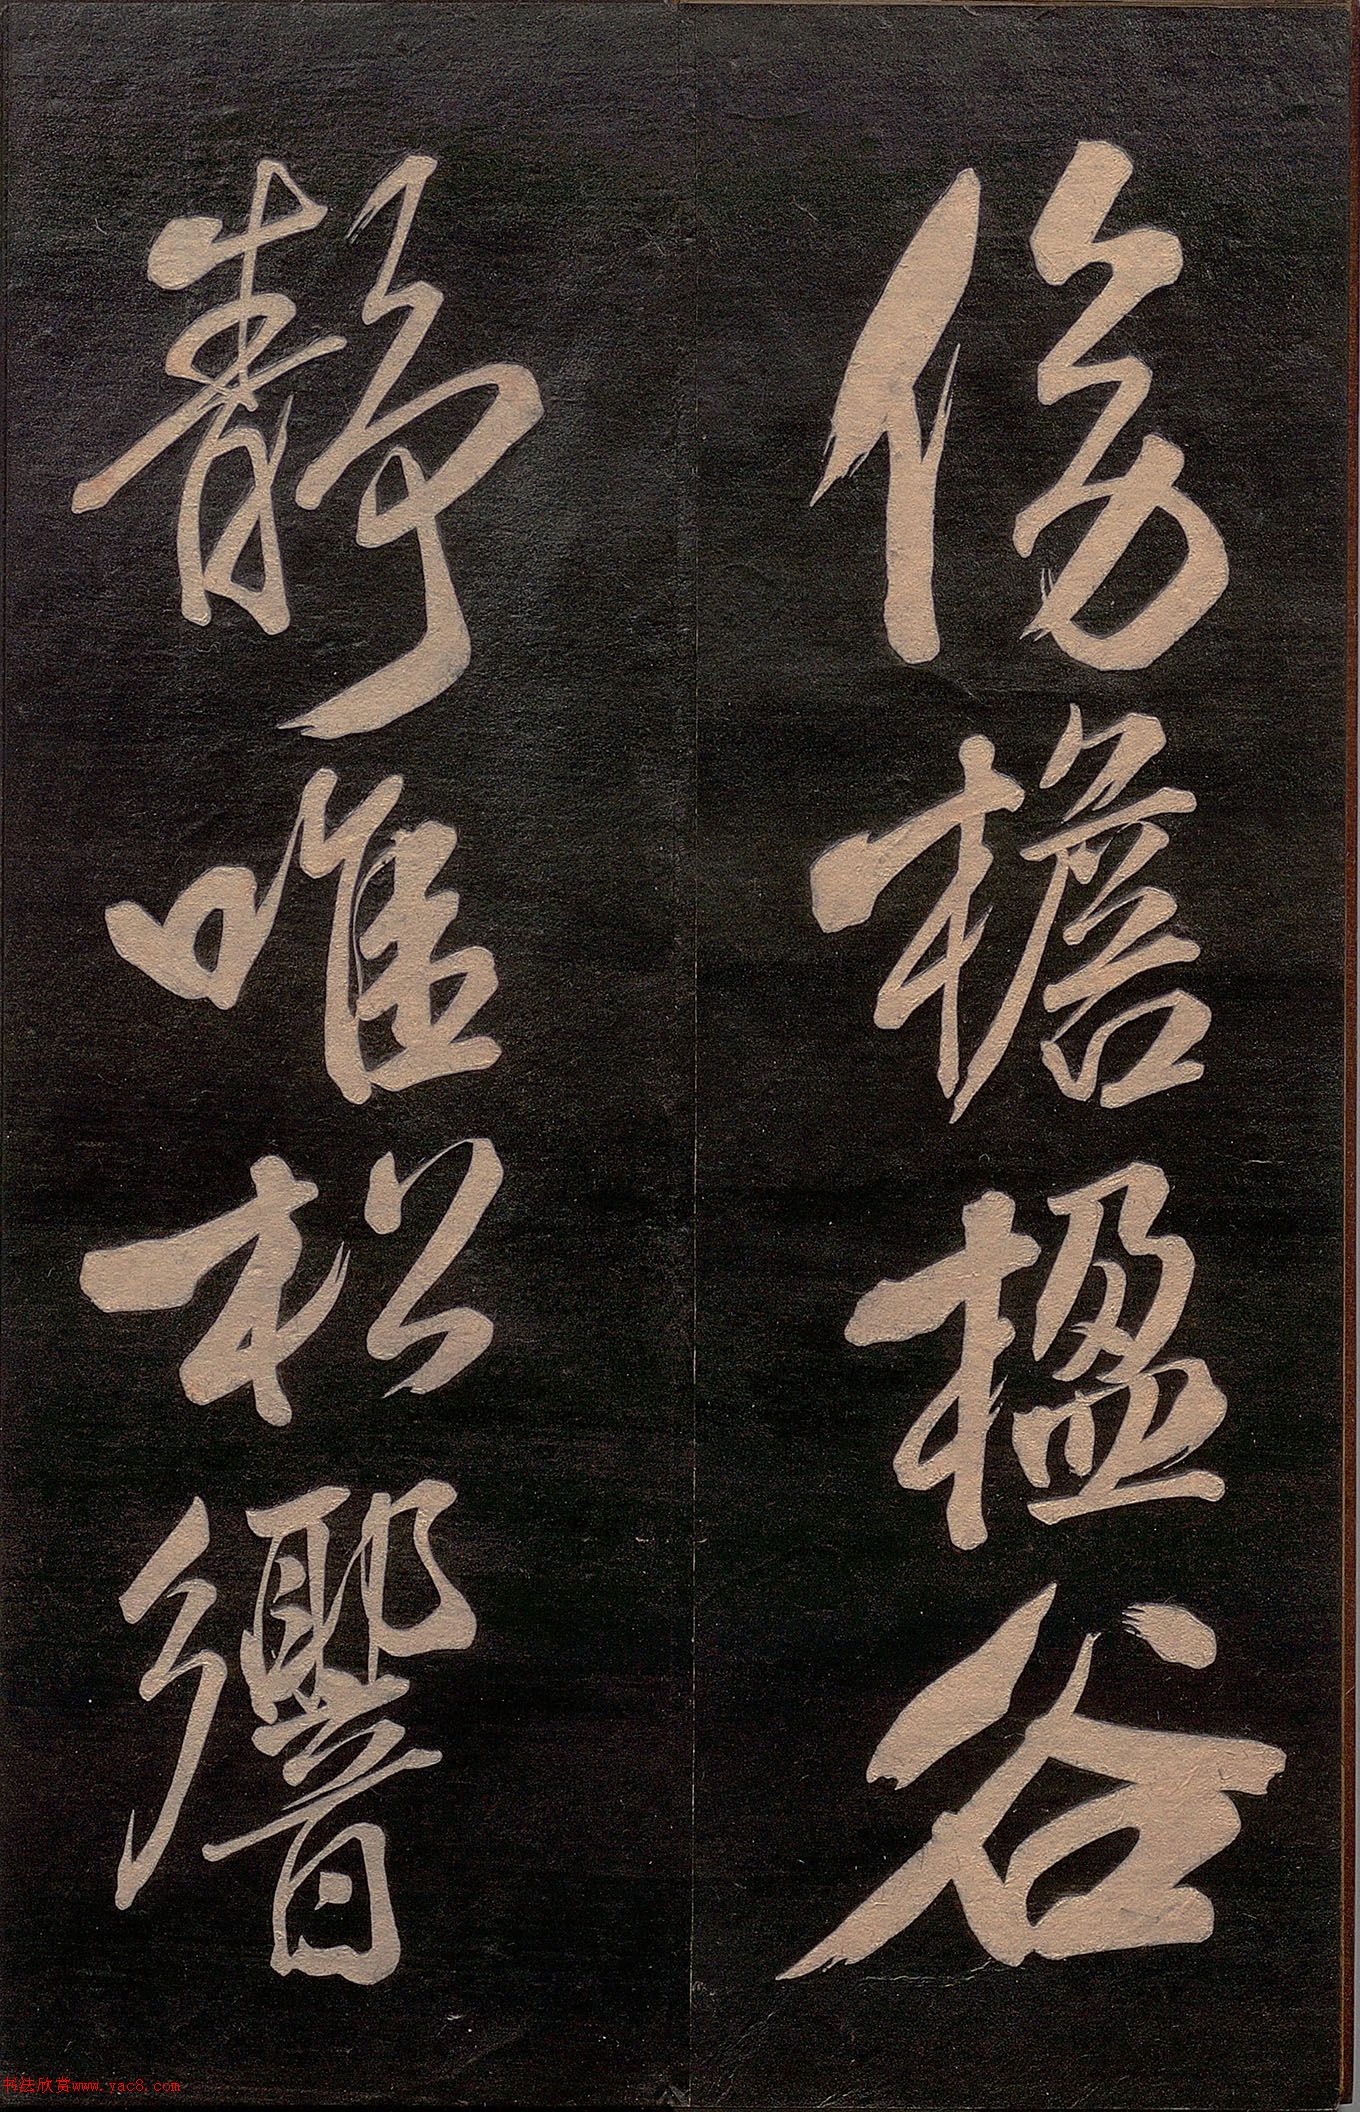 傍檐楹谷
静唯松響
书法欣赏www.yac8.com